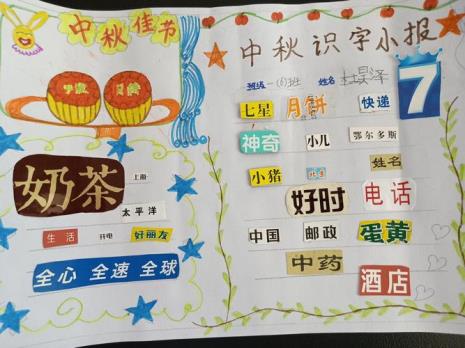 中秋佳节
奶茶
上海
太平洋
生活
好丽友
全心 全速 全球
中秋识字小报
班级一(6)班 姓名
7
七星 月饼 快递
神奇 小儿 鄂尔多斯
姓名
小猪 北京
好时 电话
中国 邮政 蛋黄
中药
酒店